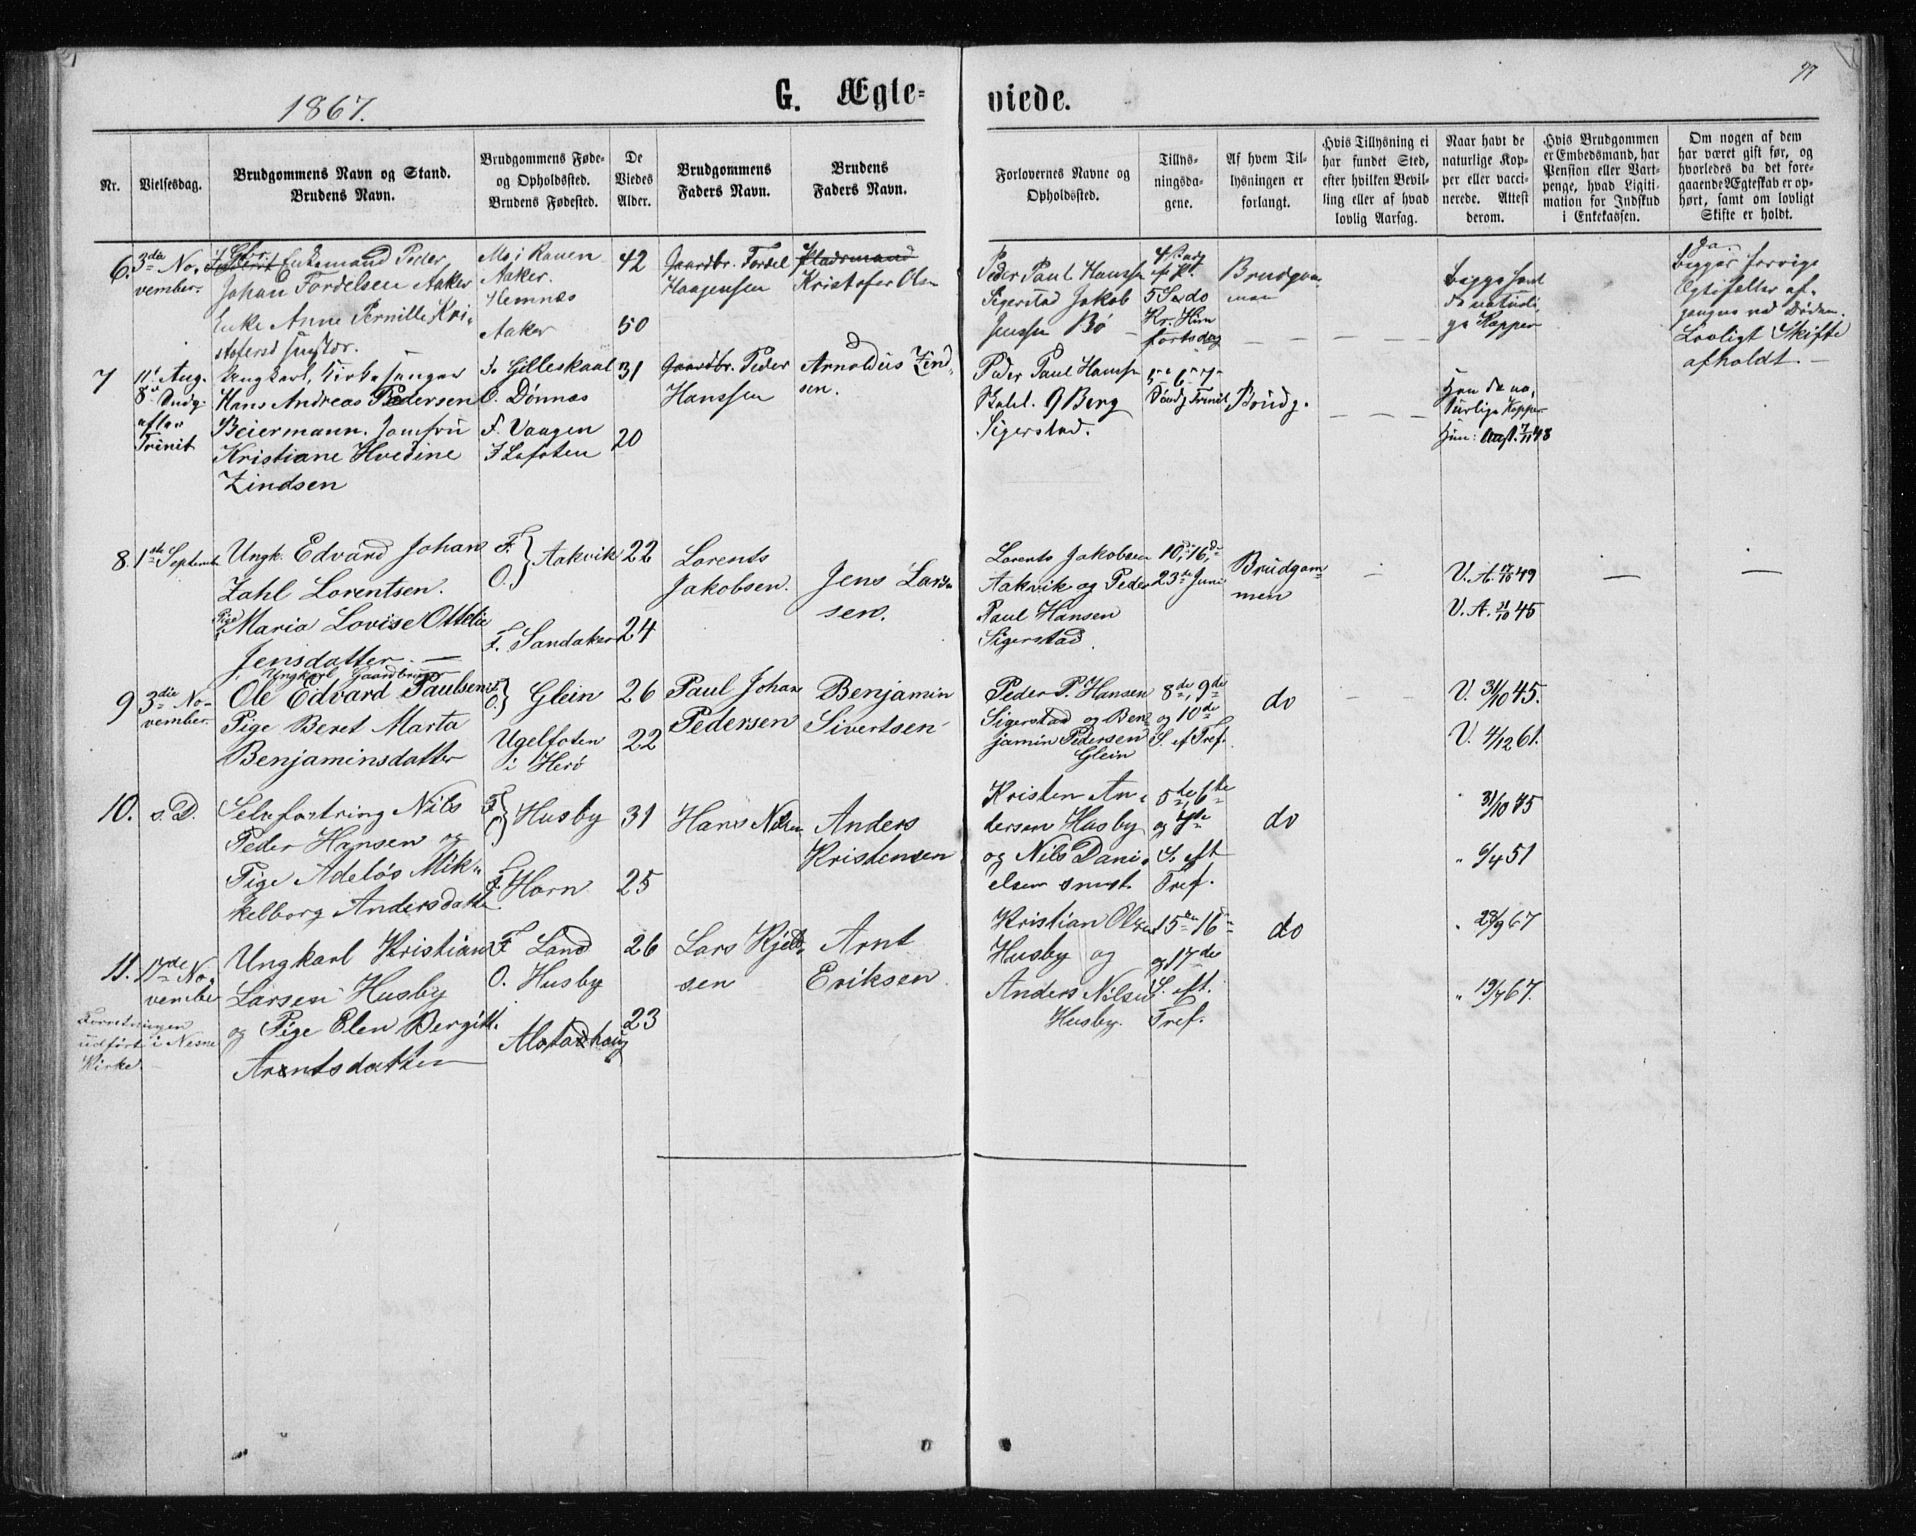 1867.
G. Ægte=
viede.
77
Nr.
Vielsesdag.
Brudgommens Navn og Stand.
Brudens Navn.
Brudgommens Føde-
og Opholdssted.
Brudens Fødested.
De
Viedes
Alder.
Brudgommens
Faders Navn.
Brudens
Faders Navn.
Forlovernes Navne og
Opholdssted.
Tillys-
ningsda-
gene.
Af hvem Til-
lysningen er
forlangt.
Hvis Tillysning ei
har fundet Sted,
efter hvilken Bevil-
ling eller af hvad
lovlig Aarsag.
Naar havt de
naturlige Kop-
per eller vacci-
nerede. Attest
derom.
Hvis Brudgommen
er Embedsmand, har
Pension eller Vart-
penge, hvad Ligiti-
mation for Indskud
i Enkekassen.
Om nogen af dem
har været gift før, og
hvorledes da det fore-
gaaende Ægteskab er op-
hørt, samt om lovligt
Skifte er holdt.
6. 3die No-
vember.
Enkemand Peder
Johan Tordelsen Aaker
Enke Anne Pernille Kri-
stofersd
Mo i Ranen
Aaker.
Hemnæs
Aaker
42
50
Gaardbr. Tordel
Haagensen
Pladsmand
Kristofer Ols
Peder Paul Hanss
Sigerstad Jakob
Jenssen Bø
5 S do
Brudgom
man
Begge havt
de naturli
ge Kopper
Ja.
Begges forrige
Ægtefeller af-
gangne ved Døden.
Lovligt Skifte
afholdt.
7
11' Aug.
8d Sndg.
after
Trinit
Ungkarl, Kirkesanger
Hans Andreas Pedersen
Beiermann. Jomfru
Kristiane Hvedine
Zindsen
F. Gilleskaal
O. Dønnæs
F. Vaagen
I Lofoten
31
20
Gaardbr. Peder
Hanssen
Arnoldus Zind
sen.
Peder Paul Hanss
Berg
Sigerstad.
5 6 7
Søndg Trinit
Brudg.
Han de na-
turlige Kopper
Hun: Attst. 7/11 48
8. 1ste Septemb
Ungk. Edvard Johan
Zahl Lorentsen.
Pige Maria Lovise Ottelie
Jensdatter. —
F.
O. } Aakvik
F. Sandaker
22
24
Lorents
Jakobsen.
Jens Lar
sen.
Lorents Jakobsen
Aakvik og Peder
Paul Hansen
Sigerstad.
10de, 16de
23de Juni
Brudgom
men
V. A. 49
V. A. 45
9 3die No-
vember.
Ungkarl Gaardbruger
Ole Edvard Paulsen
Pige Beret Marta
Benjaminsdatter
F.
O. } Glein
Ugelfoten
i Herø
26
22
Paul Johan
Pedersen
Benjamin
Sivertsen
Peder P. Hansen
Sigerstad og Ben-
jamin Pedersen
Glein
8de, 9de
og 10de
S. ef Tref.
do
V. 31/10 45.
V. 4/12 61.
10. s. D.
Selvfostring Nils
Peder Hansen og
Pige Adeløs Mik-
kelborg Andersdatte
F.
O } Husby
F. Horn
31
25
Hans Nilsen
Anders
Kristensen
Kristen An-
dersen Husby
og Nils Dani-
elsen smst.
5te, 6te
og 7de
S. eft
Tref.
do
" 31/10 45
" 6/7 51
11. 17de No-
vember
Forretningen
udført i Nesne
Kirke.
Ungkarl Kristian
Larsen Husby
og Pige Elen Bergitt.
Arntsdatter
F. Land
O. Husby
Alstadhoug
26
23
Lars Kjeld
sen
Arnt
Eriksen
Kristian Olsen
Husby og
Anders Nilsen
Husby.
15de 16de
og 17de
S. eft.
Tref.
do
" 28/9 67
" 19/7 67.